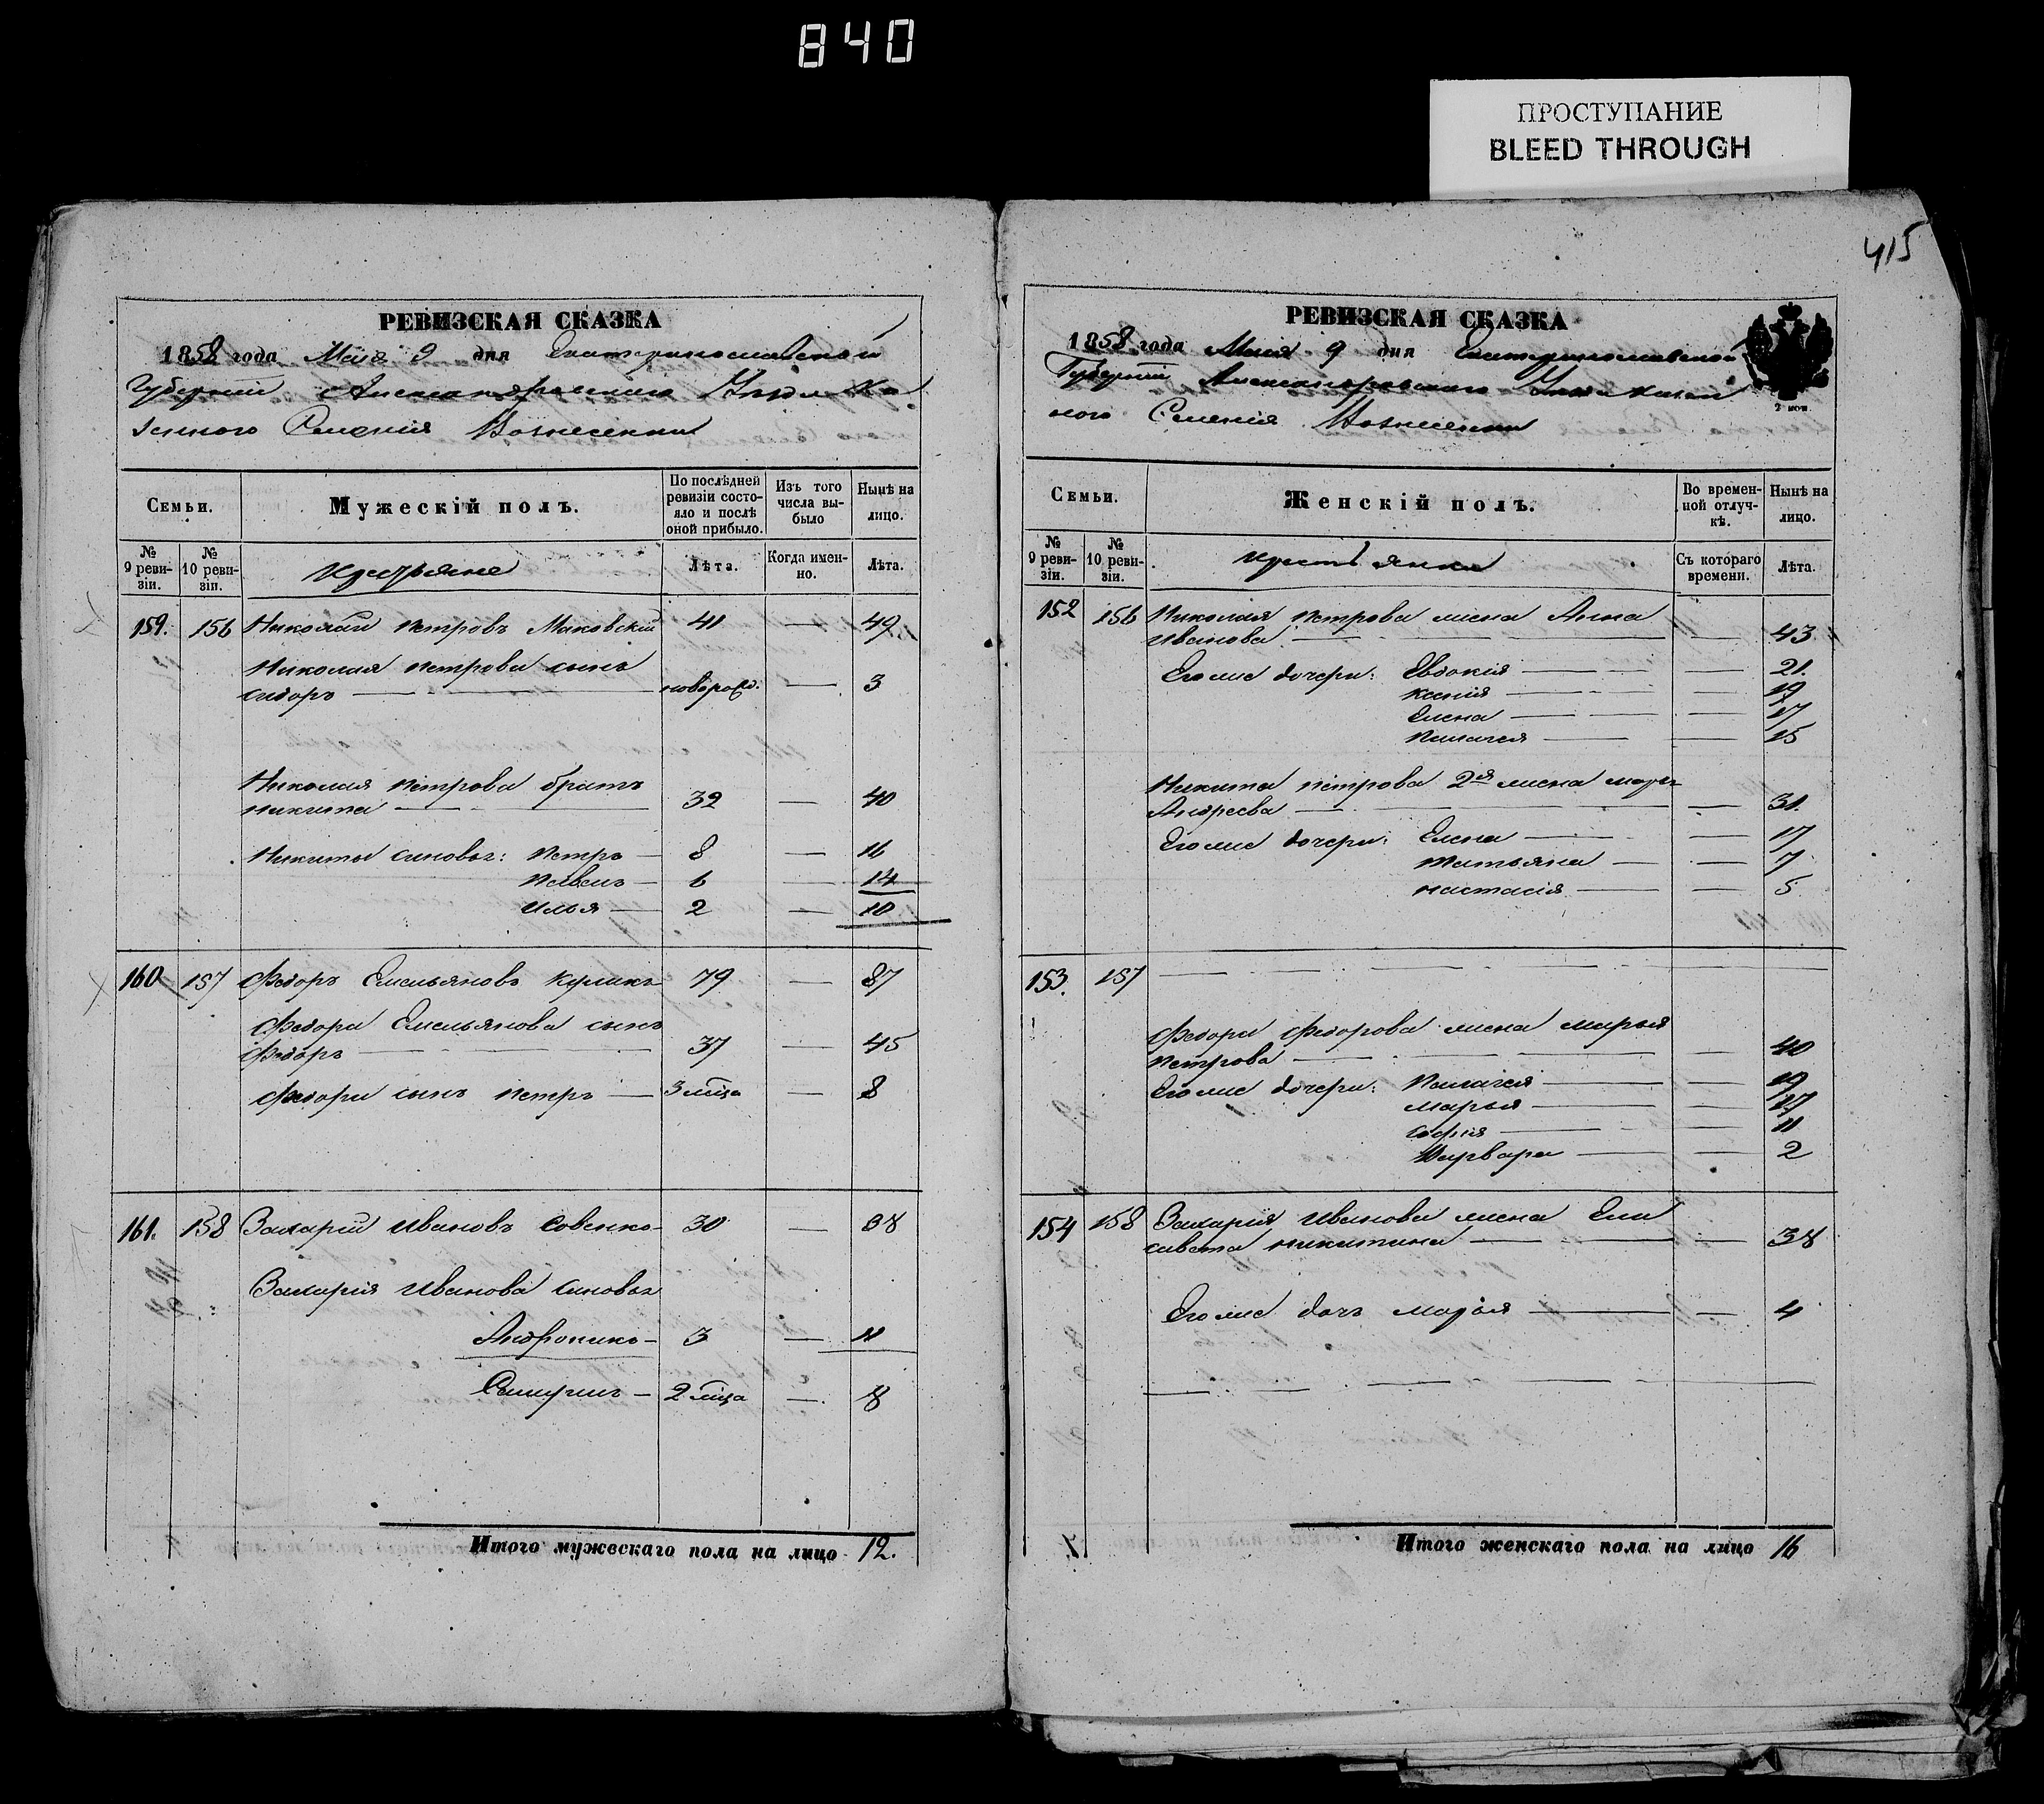 840
ПРОСТУПАНИЕ
BLEED THROUGH
415
РЕВИЗСКАЯ СКАЗКА
1858 года Мая 9 дня Екатеринославской
Губерніи Александровскаго Уѣзда Ка
зеннаго Селенія Вознесенки
Семьи.
Мужескій полъ.
По послѣдней ревизіи состояло и послѣ оной прибыло.
Изъ того числа выбыло
Нынѣ на лицо.
№ 9 ревизіи.
№ 10 ревизіи.
Крестьяне
Лѣта.
Когда именно.
Лѣта.
159. 156 Николай Петровъ Маковскій 41 — 49
Николая Петрова сынъ
Сидоръ — новорожд. — 3
Николая Петрова братъ
Никита — 32 — 40
Никиты синовья: Петръ — 8 — 16
Павелъ — 6 — 14
Илья — 2 — 10
160 157 Федоръ Емельяновъ Куликъ 79 — 87
Федора Емельянова сынъ
Федоръ — 37 — 45
Федора сынъ Петръ — 3 мца — 8
161. 158 Захарій Ивановъ Совенко 30 — 38
Захарія Иванова синовья
Андроникъ — 3 — 11
2 мца — 8
Итого мужескаго пола на лицо 12.
РЕВИЗСКАЯ СКАЗКА
1858 года Мая 9 дня Екатеринославской
Губерніи Александровскаго Уѣзда Казен
ного Селенія Вознесенки
2 коп.
Семьи.
Женскій полъ.
Во временной отлучкѣ.
Нынѣ на лицо.
№ 9 ревизіи.
№ 10 ревизіи.
Крестьянки
Съ котораго времени.
Лѣта.
152 156 Николая Петрова жена Анна
Иванова — 43
Его же дочери: Евдокія — 21.
Ксенія — 19
Елена — 17
Пелагея — 15
Никита Петрова 2я жена Марья
Андреева — 31.
Его же дочери: Елена — 17
Татьяна — 7
Настасія — 5
153. 157 —
Федора Федорова жена Марья
Петрова — 40
Его же дочери: Пелагея — 19
Марья — 17
Софія — 11
Варвара — 2
154 158 Захарія Иванова жена Ели
савета Никитина — 38
Его же дочь Марья — 4
Итого женскаго пола на лицо 16